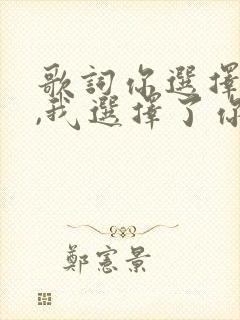 歌詞你選擇
,我選擇了你
鄭憲景